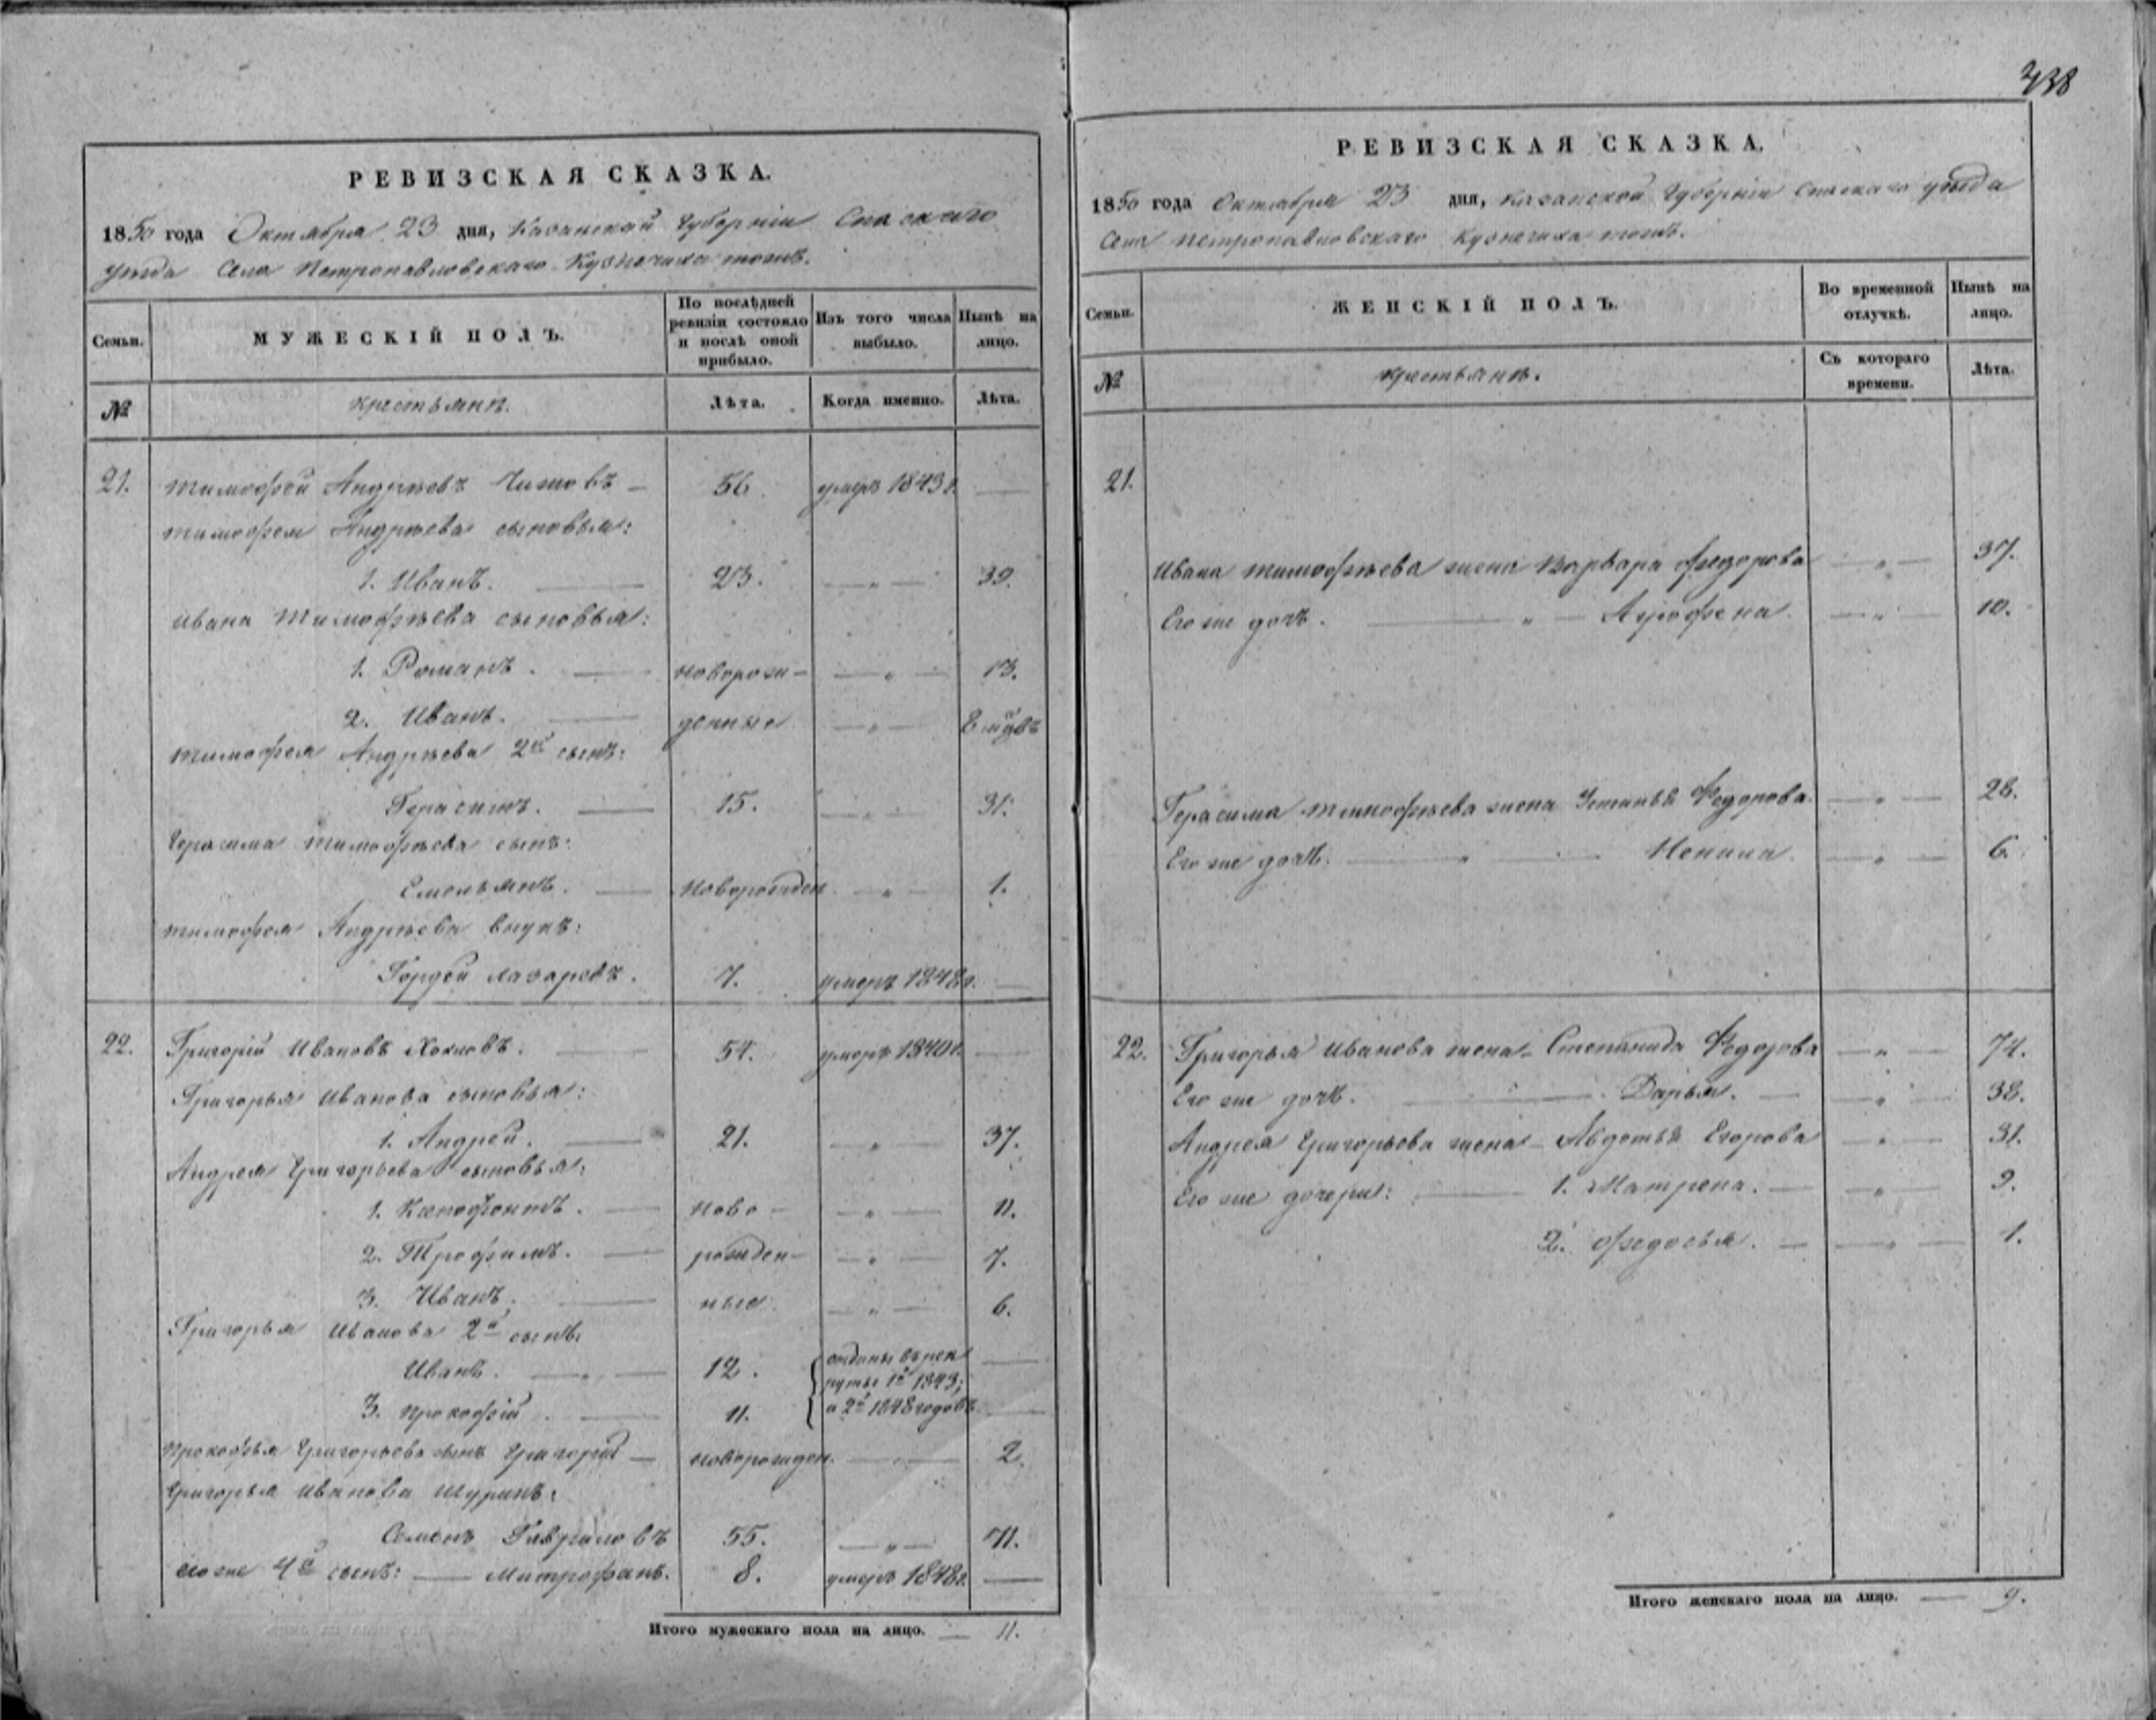 338
РЕВИЗСКАЯ СКАЗКА.
1850 года Октября 23 дня, Казанской Губернiи Спаскаго
уѣзда Села Петропавловскаго Кузнечиха тожъ.
Семьи.
МУЖЕСКIЙ ПОЛЪ.
По послѣдней ревизiи состояло и послѣ оной прибыло.
Изъ того числа выбыло.
Нынѣ на лицо.
№
крестьянѣ.
Лѣта.
Когда именно.
Лѣта.
21. Тимофей Андрѣевъ — 56. умеръ 1843 г. —
Тимофея Андрѣева сыновья:
1. Иванъ. — 23. — „ — 39.
Ивана Тимофѣева сыновья:
1. Романъ. — новорож- — „ — 13.
2. Иванъ. — денные — „ — 8 мцовъ
Тимофея Андрѣева 2й сынъ:
Герасимъ. — 15. — „ — 31.
Герасима Тимофѣева сынъ:
Емельянъ. — новорожден. — „ — 1.
Тимофея Андрѣева внукъ:
Гордей Лазаревъ. 7. умеръ 1848 г. —
22. Григорiй Ивановъ — 54. умеръ 1840 г. —
Григорья Иванова сыновья:
1. Андрей. — 21. — „ — 37.
Андрея Григорьева сыновья:
1. Ксенофонтъ. — ново- — „ — 11.
2. Трофимъ. — рожден- — „ — 7.
3. Иванъ. — ные — „ — 6.
Григорья Иванова 2й сынъ:
Иванъ. — „ — 12. { отданы въ рек —
руты 1й 1843;
3. Прокофiй. — 11. и 2й 1848 годовъ —
Прокофья Григорьева сынъ Григорiй — новорожден. — „ — 2.
Григорья Иванова Шуринъ:
Семенъ Гавриловъ 55. — „ — 71.
его же 4й сынъ: — Митрофанъ. 8. умеръ 1848 г. —
Итого мужескаго пола на лицо. — 11.
РЕВИЗСКАЯ СКАЗКА.
1850 года Октября 23 дня, Казанской Губернiи Спаскаго уѣзда
Села Петропавловскаго Кузнечиха тожъ.
Семьи.
ЖЕНСКIЙ ПОЛЪ.
Во временной отлучкѣ.
Нынѣ на лицо.
№
крестьянѣ.
Съ котораго времени.
Лѣта.
21.
Ивана Тимофѣева жена Варвара Федорова — „ — 37.
Его же дочь. — „ — Агрофена. — „ — 10.
Герасима Тимофѣева жена Устинья Федорова. — „ — 28.
Его же дочь. — „ — Ненила. — „ — 6.
22. Григорья Иванова жена — Степанида Федорова — „ — 74.
Его же дочь. — „ — Дарья. — „ — 38.
Андрея Григорьева жена — Авдотья Егорова — „ — 31.
Его же дочери: — 1. Матрена. — „ — 9.
2. Федосья. — „ — 1.
Итого женскаго пола на лицо. — 9.